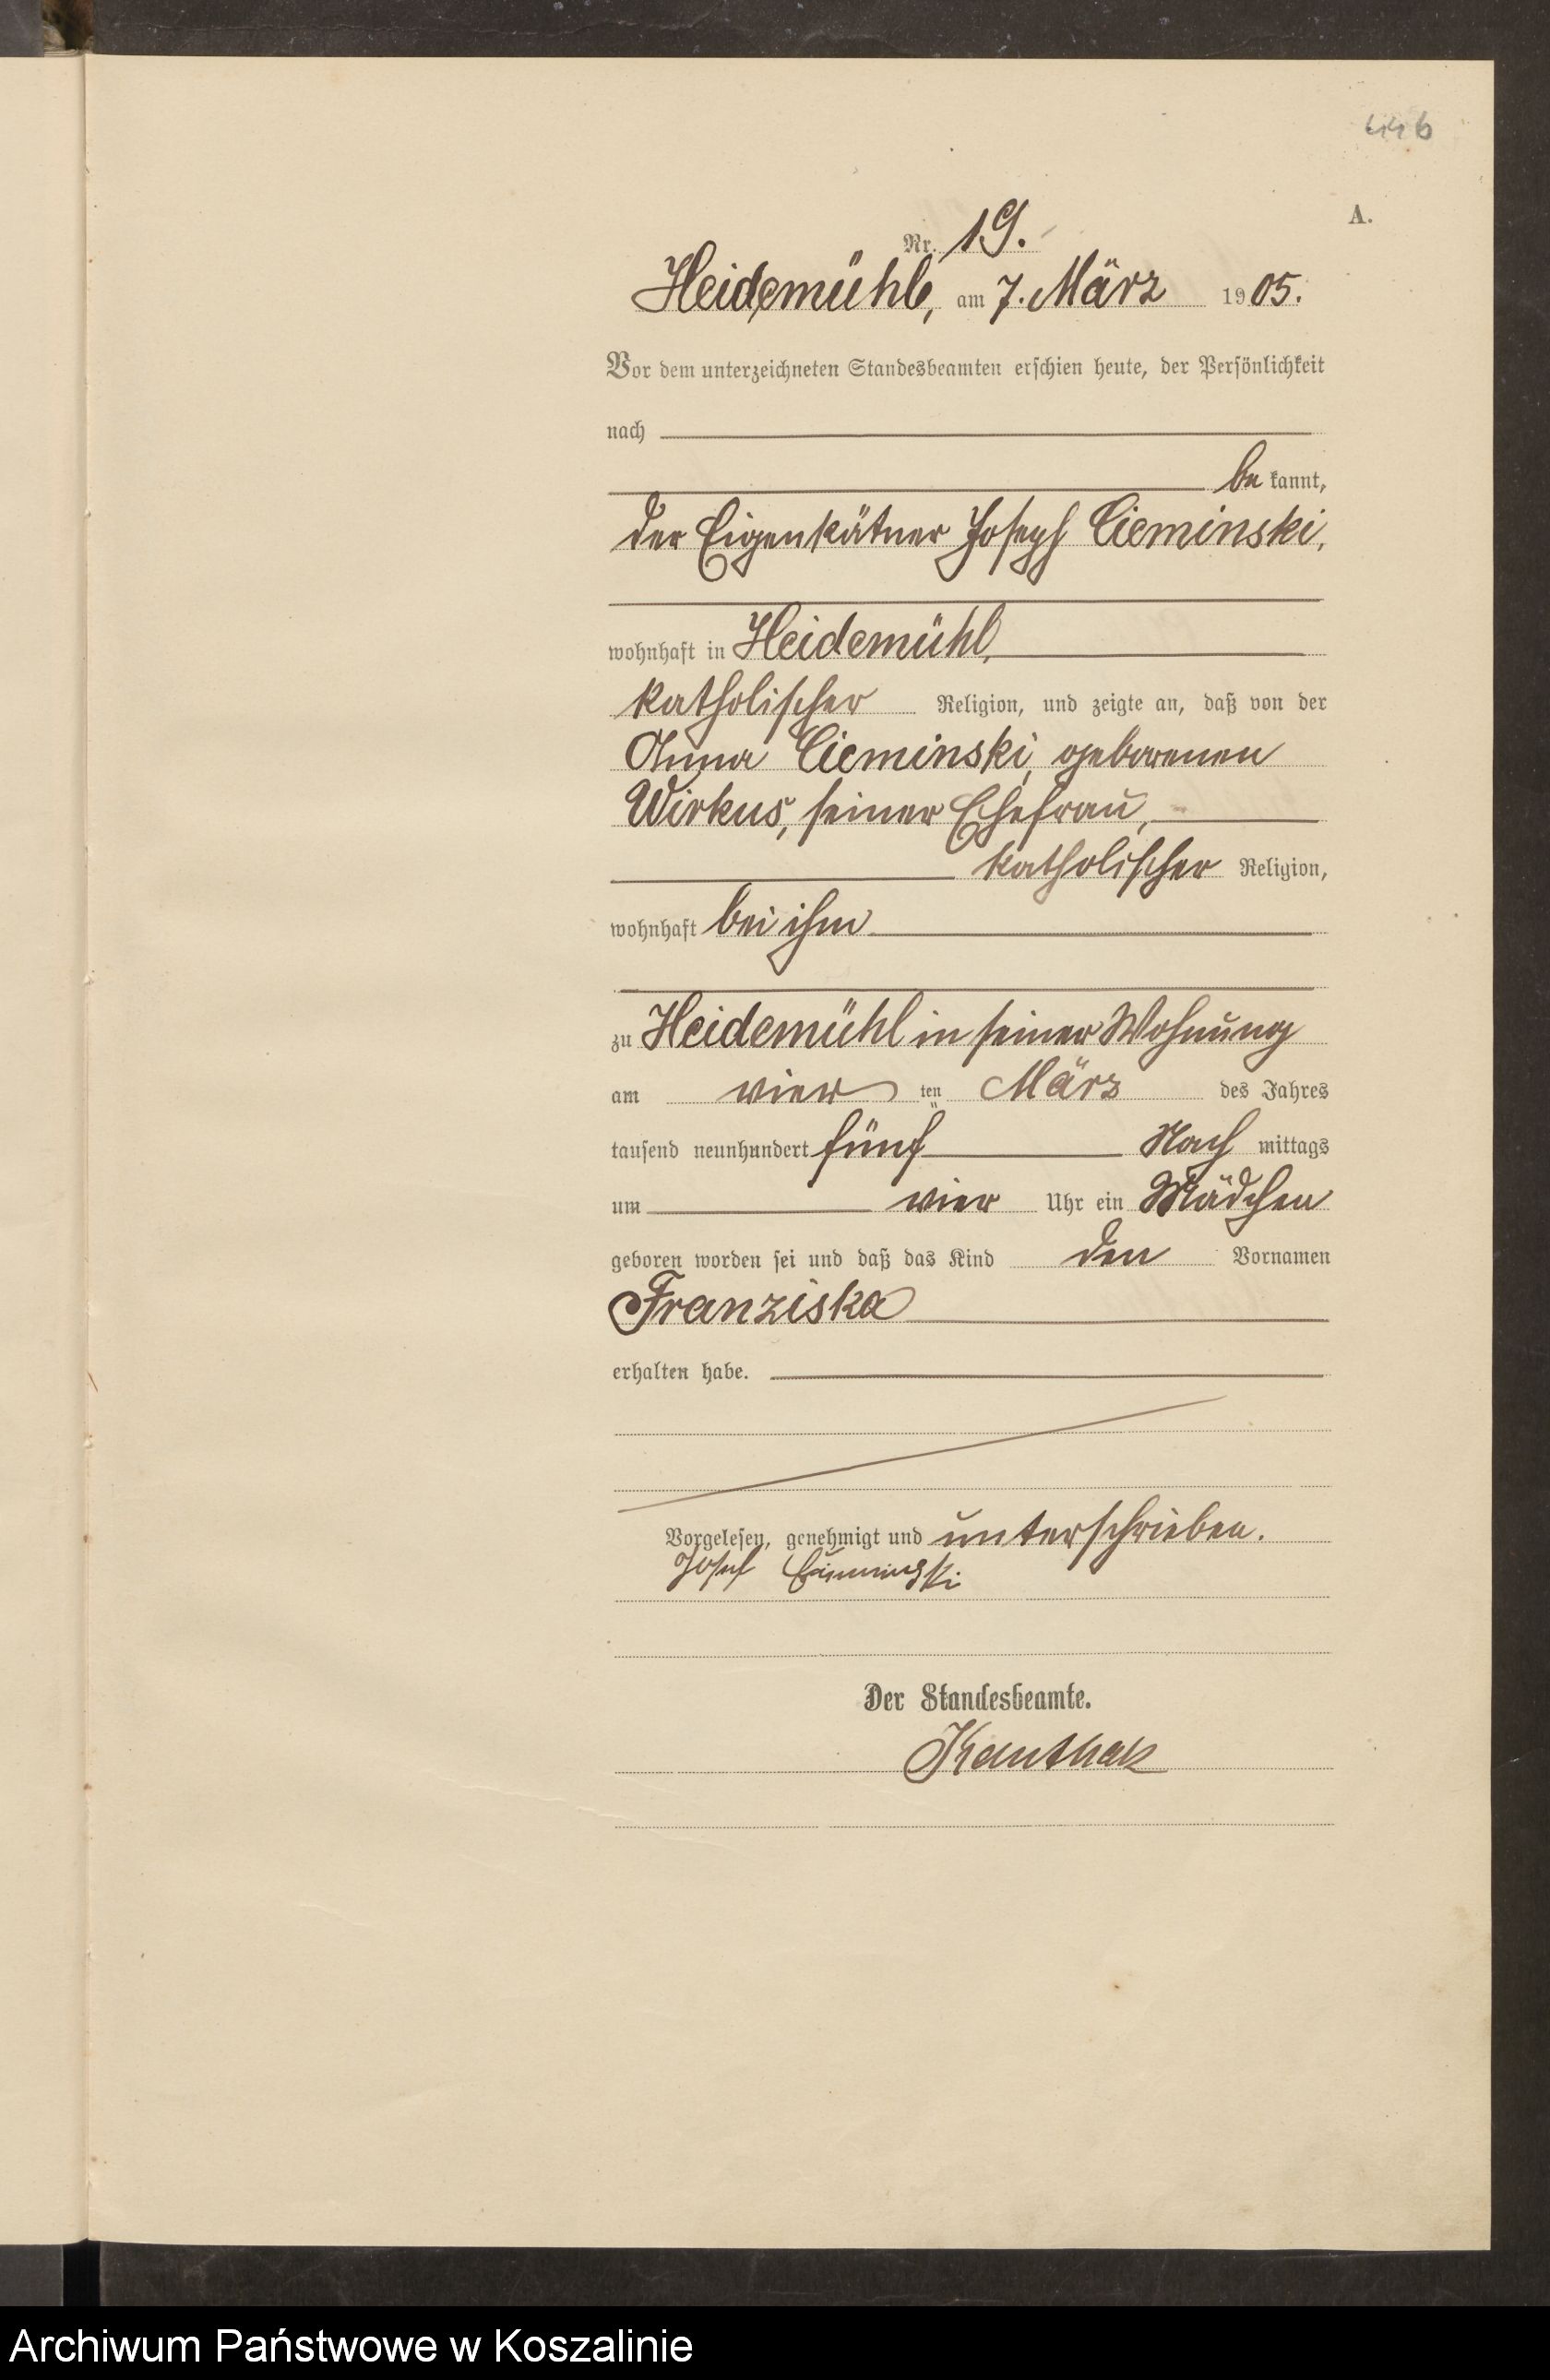 A.
Nr. 19.
Heidemühl, am 7. März 1905.
Vor dem unterzeichneten Standesbeamten erschien heute, der Persönlichkeit
nach
bekannt,
der Eigenkätner Joseph Cieminski,
wohnhaft in Heidemühl,
katholischer Religion, und zeigte an, daß von der
Anna Cieminski, geborenen
Wirkus, seiner Ehefrau,
katholischer Religion,
wohnhaft bei ihm
zu Heidemühl in seiner Wohnung
am vierten März des Jahres
tausend neunhundert fünf Nachmittags
um vier Uhr ein Mädchen
geboren worden sei und daß das Kind den Vornamen
Franziska
erhalten habe.
Vorgelesen, genehmigt und unterschrieben.
Josef Cieminski
Der Standesbeamte.
Kauthak
Archiwum Państwowe w Koszalinie